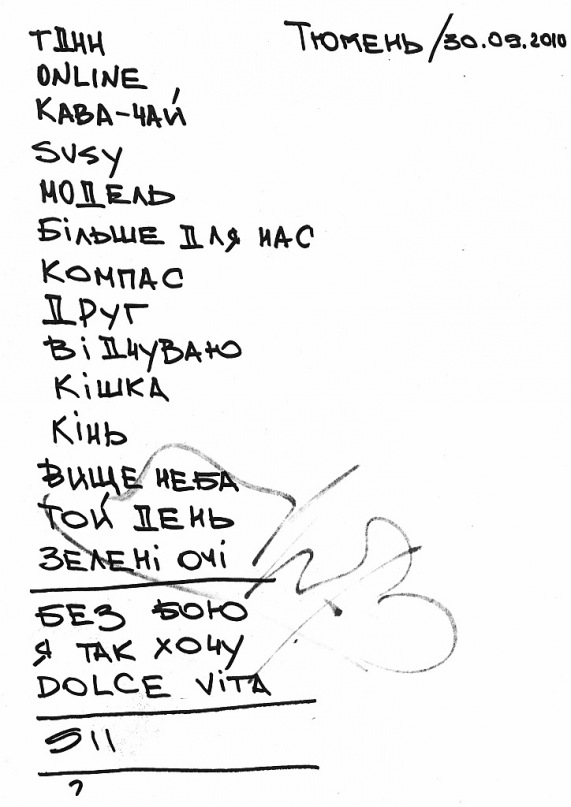 Тюмень/30.09.2010
ТДНН
ONLINE
КАВА-ЧАЙ
SUSY
МОДЕЛЬ
БіЛЬШЕ ДЛЯ НАС
КОМПАС
ДРУГ
ВіДЧУВАЮ
КіШКА
КіНЬ
ВИЩЕ НЕБА
ТОЙ ДЕНЬ
ЗЕЛЕНі ОЧі
БЕЗ БОЮ
Я ТАК ХОЧУ
DOLCE ViTA
911
?